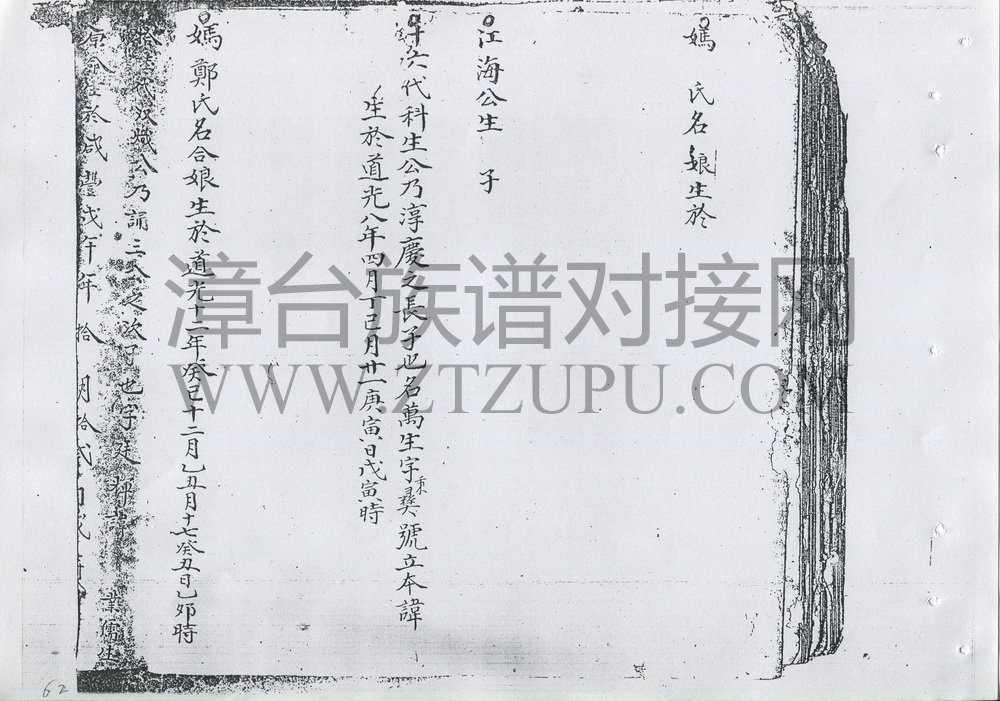 媽 氏名娘生於
江海公生 子
十六代科生公乃淳慶之長子也名萬生字秉彝號立本諱
生於道光八年四月丁巳月廿一庚寅日戊寅時
媽鄭氏名合娘生於道光十二年癸巳十二月乙丑月十七癸丑日乙卯時
代双熾公乃誦三公之次子也字廷 諱 業儒生
於咸豐戊午年拾 月拾弍
漳台族谱对接网
WWW.ZTZUPU.COM
62